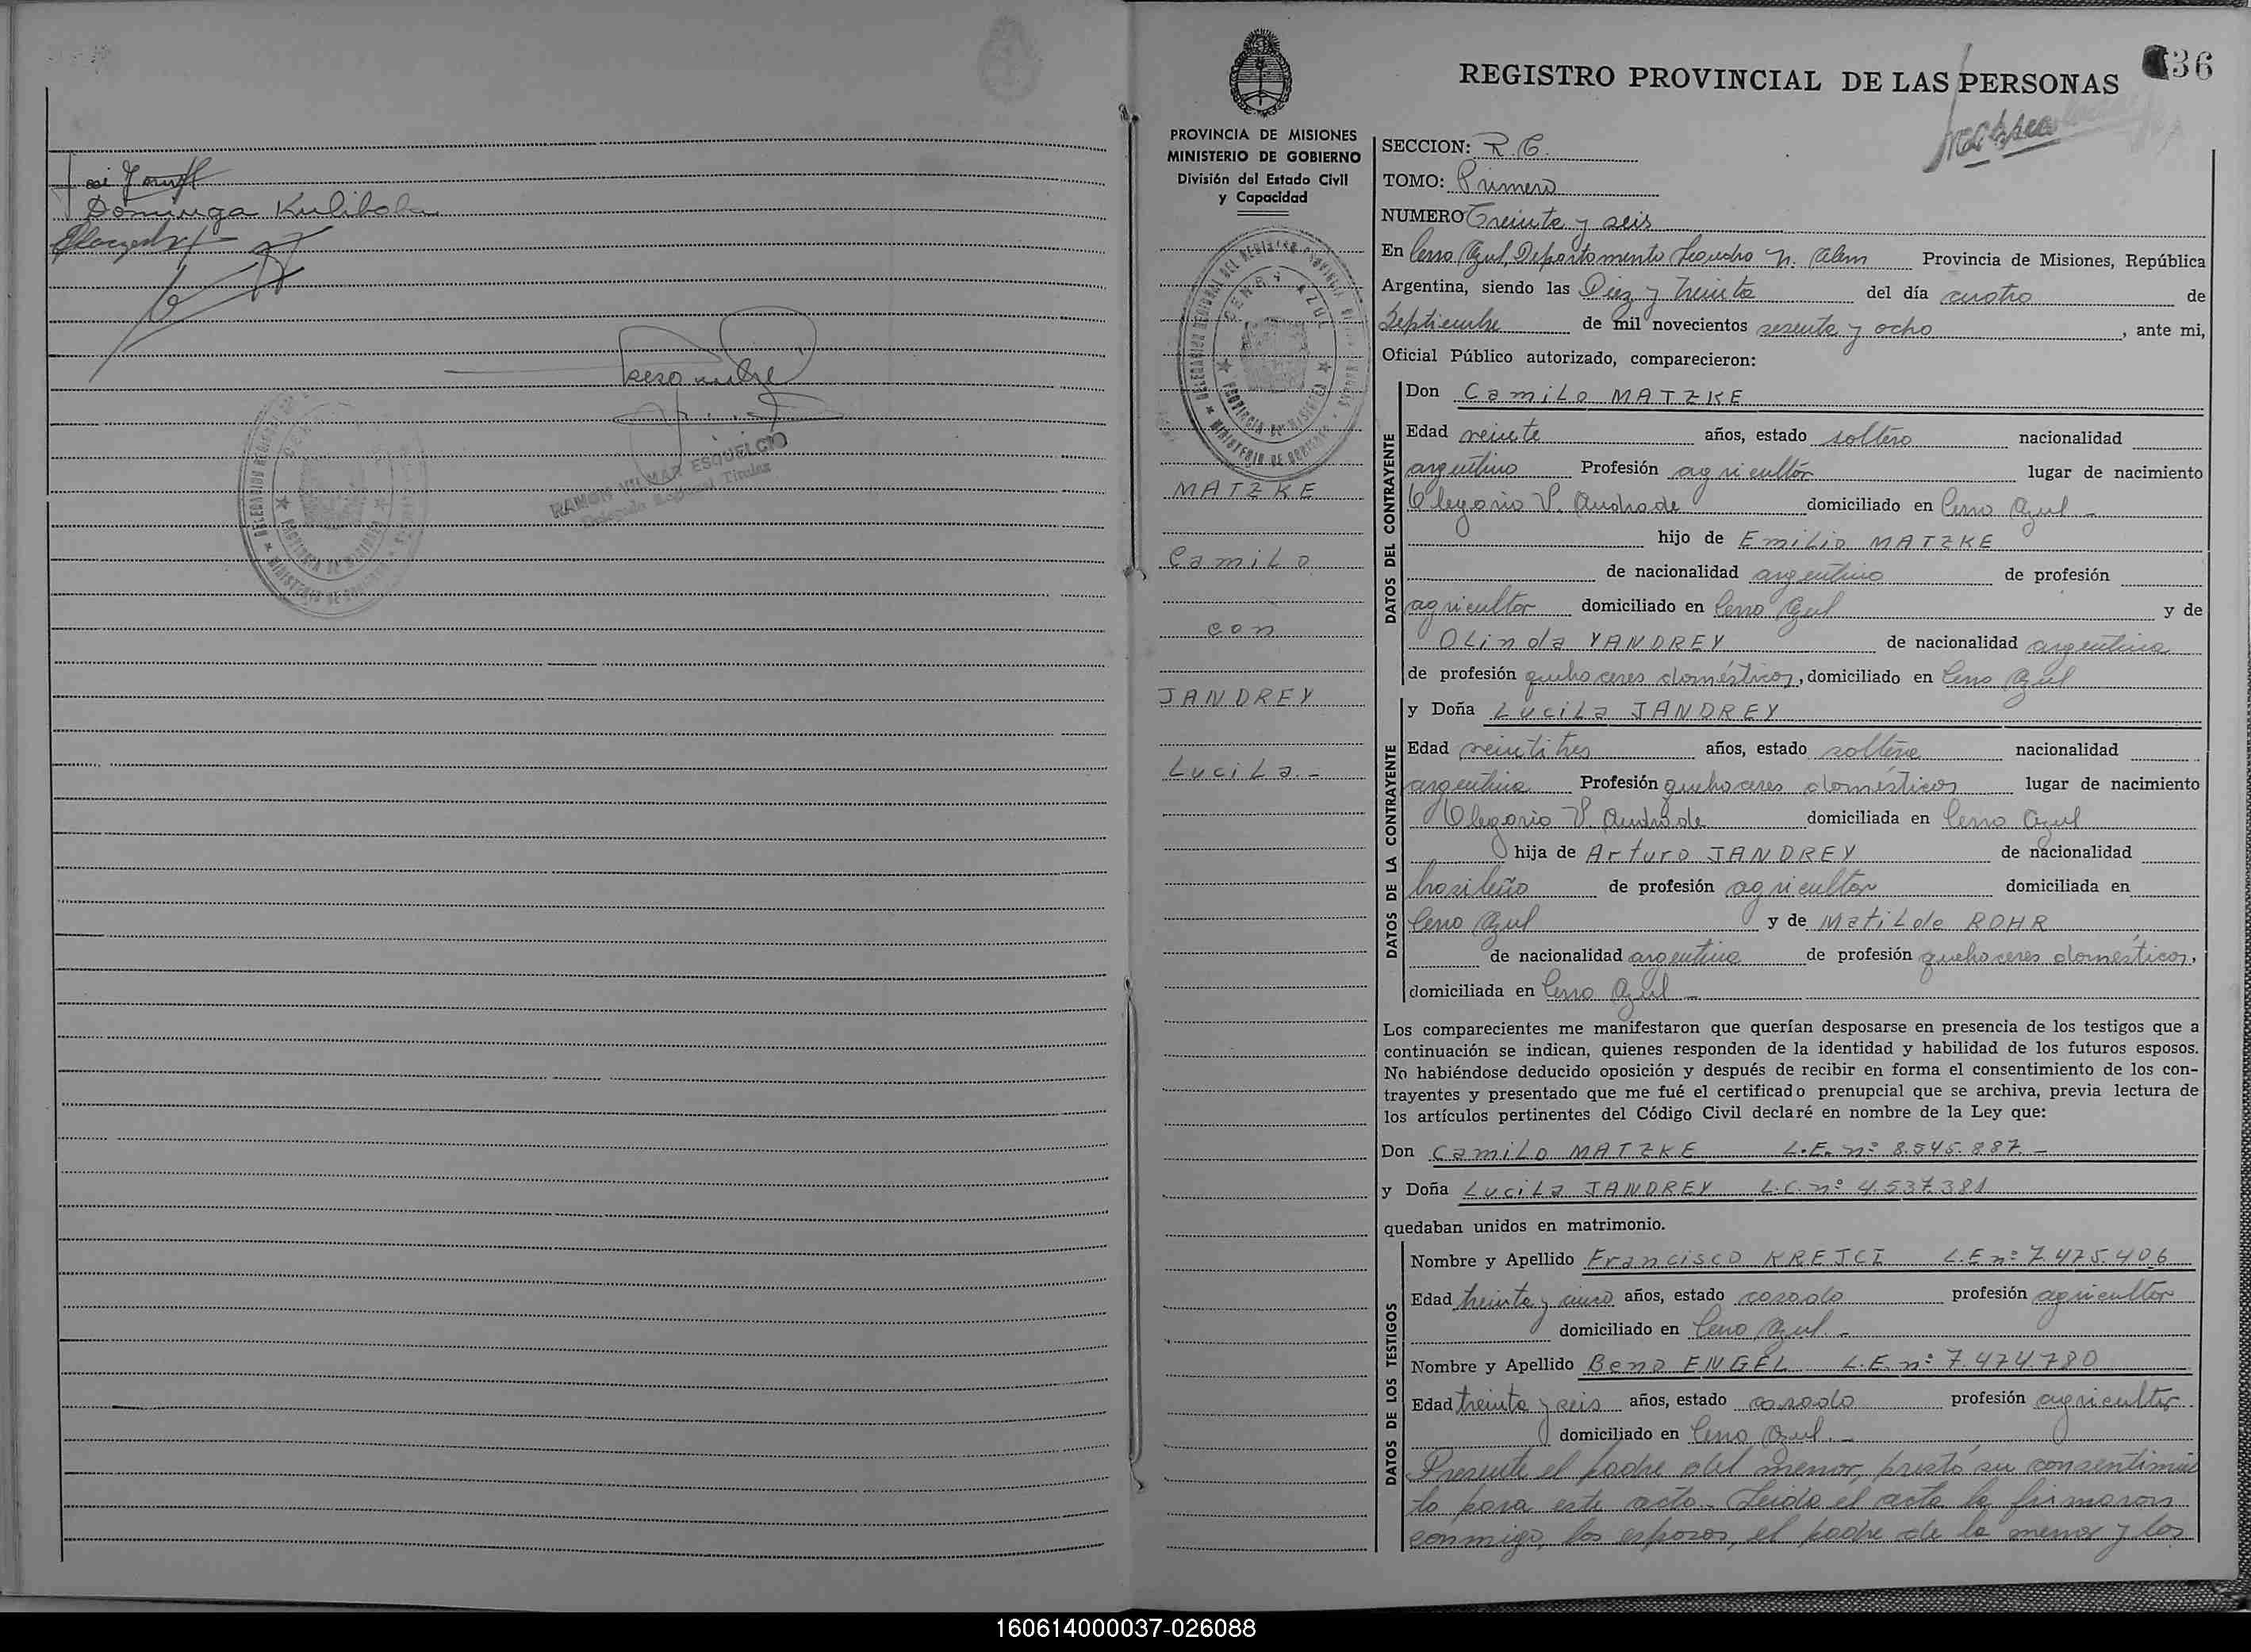 Dominga Kulibaba
RAMON VILMAR ESQUELCIO
Delegado Regional Titular
36
REGISTRO PROVINCIAL DE LAS PERSONAS
PROVINCIA DE MISIONES
MINISTERIO DE GOBIERNO
División del Estado Civil
y Capacidad
MATZKE
Camilo
con
JANDREY
Lucila.-
SECCION: R.C.
TOMO: Primero
NUMERO Treinta y seis
En Cerro Azul, Departamento Leandro N. Alem Provincia de Misiones, República
Argentina, siendo las Diez y treinta del día cuatro de
Septiembre de mil novecientos sesenta y ocho, ante mi,
Oficial Público autorizado, comparecieron:
DATOS DEL CONTRAYENTE
Don Camilo MATZKE
Edad veinte años, estado soltero nacionalidad
argentino Profesión agricultor lugar de nacimiento
Olegario V. Andrade domiciliado en Cerro Azul -
hijo de Emilio MATZKE
de nacionalidad argentino de profesión
agricultor domiciliado en Cerro Azul y de
Olinda YANDREY de nacionalidad argentina
de profesión quehaceres domésticos, domiciliado en Cerro Azul
DATOS DE LA CONTRAYENTE
y Doña Lucila JANDREY
Edad veintitres años, estado soltera nacionalidad
argentina Profesión quehaceres domésticos lugar de nacimiento
Olegario V. Andrade domiciliada en Cerro Azul
hija de Arturo JANDREY de nacionalidad
brasileño de profesión agricultor domiciliada en
Cerro Azul y de Matilde ROHR
de nacionalidad argentina de profesión quehaceres domésticos,
domiciliada en Cerro Azul -
Los comparecientes me manifestaron que querían desposarse en presencia de los testigos que a
continuación se indican, quienes responden de la identidad y habilidad de los futuros esposos.
No habiéndose deducido oposición y después de recibir en forma el consentimiento de los con-
trayentes y presentado que me fué el certificado prenupcial que se archiva, previa lectura de
los artículos pertinentes del Código Civil declaré en nombre de la Ley que:
Don Camilo MATZKE L.E. nº 8.545.887.-
y Doña Lucila JANDREY L.C. nº 4.537.381
quedaban unidos en matrimonio.
DATOS DE LOS TESTIGOS
Nombre y Apellido Francisco KREJCI L.E nº 7.475.406
Edad treinta y cinco años, estado casado profesión agricultor
domiciliado en Cerro Azul.-
Nombre y Apellido Beno ENGEL L.E. nº 7.474.780
Edad treinta y seis años, estado casado profesión agricultor
domiciliado en Cerro Azul.-
Presente el padre del menor, prestó su consentimien
to para este acto.- Leida el acta la firmaron
conmigo, los esposos, el padre de la menor y los
160614000037-026088